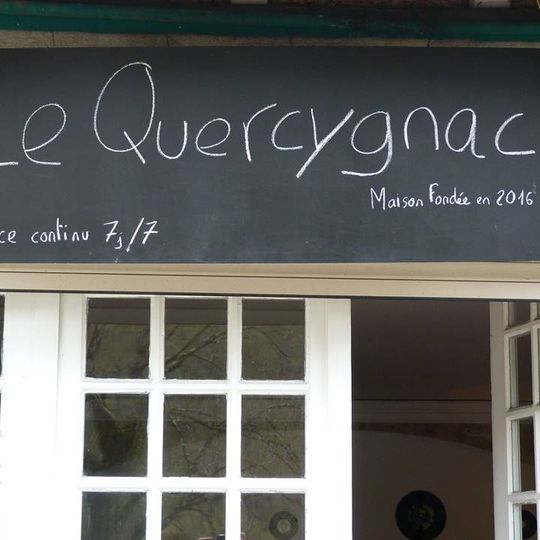 Le Quercygnac
Maison Fondée en 2016
ce continu 7j/7